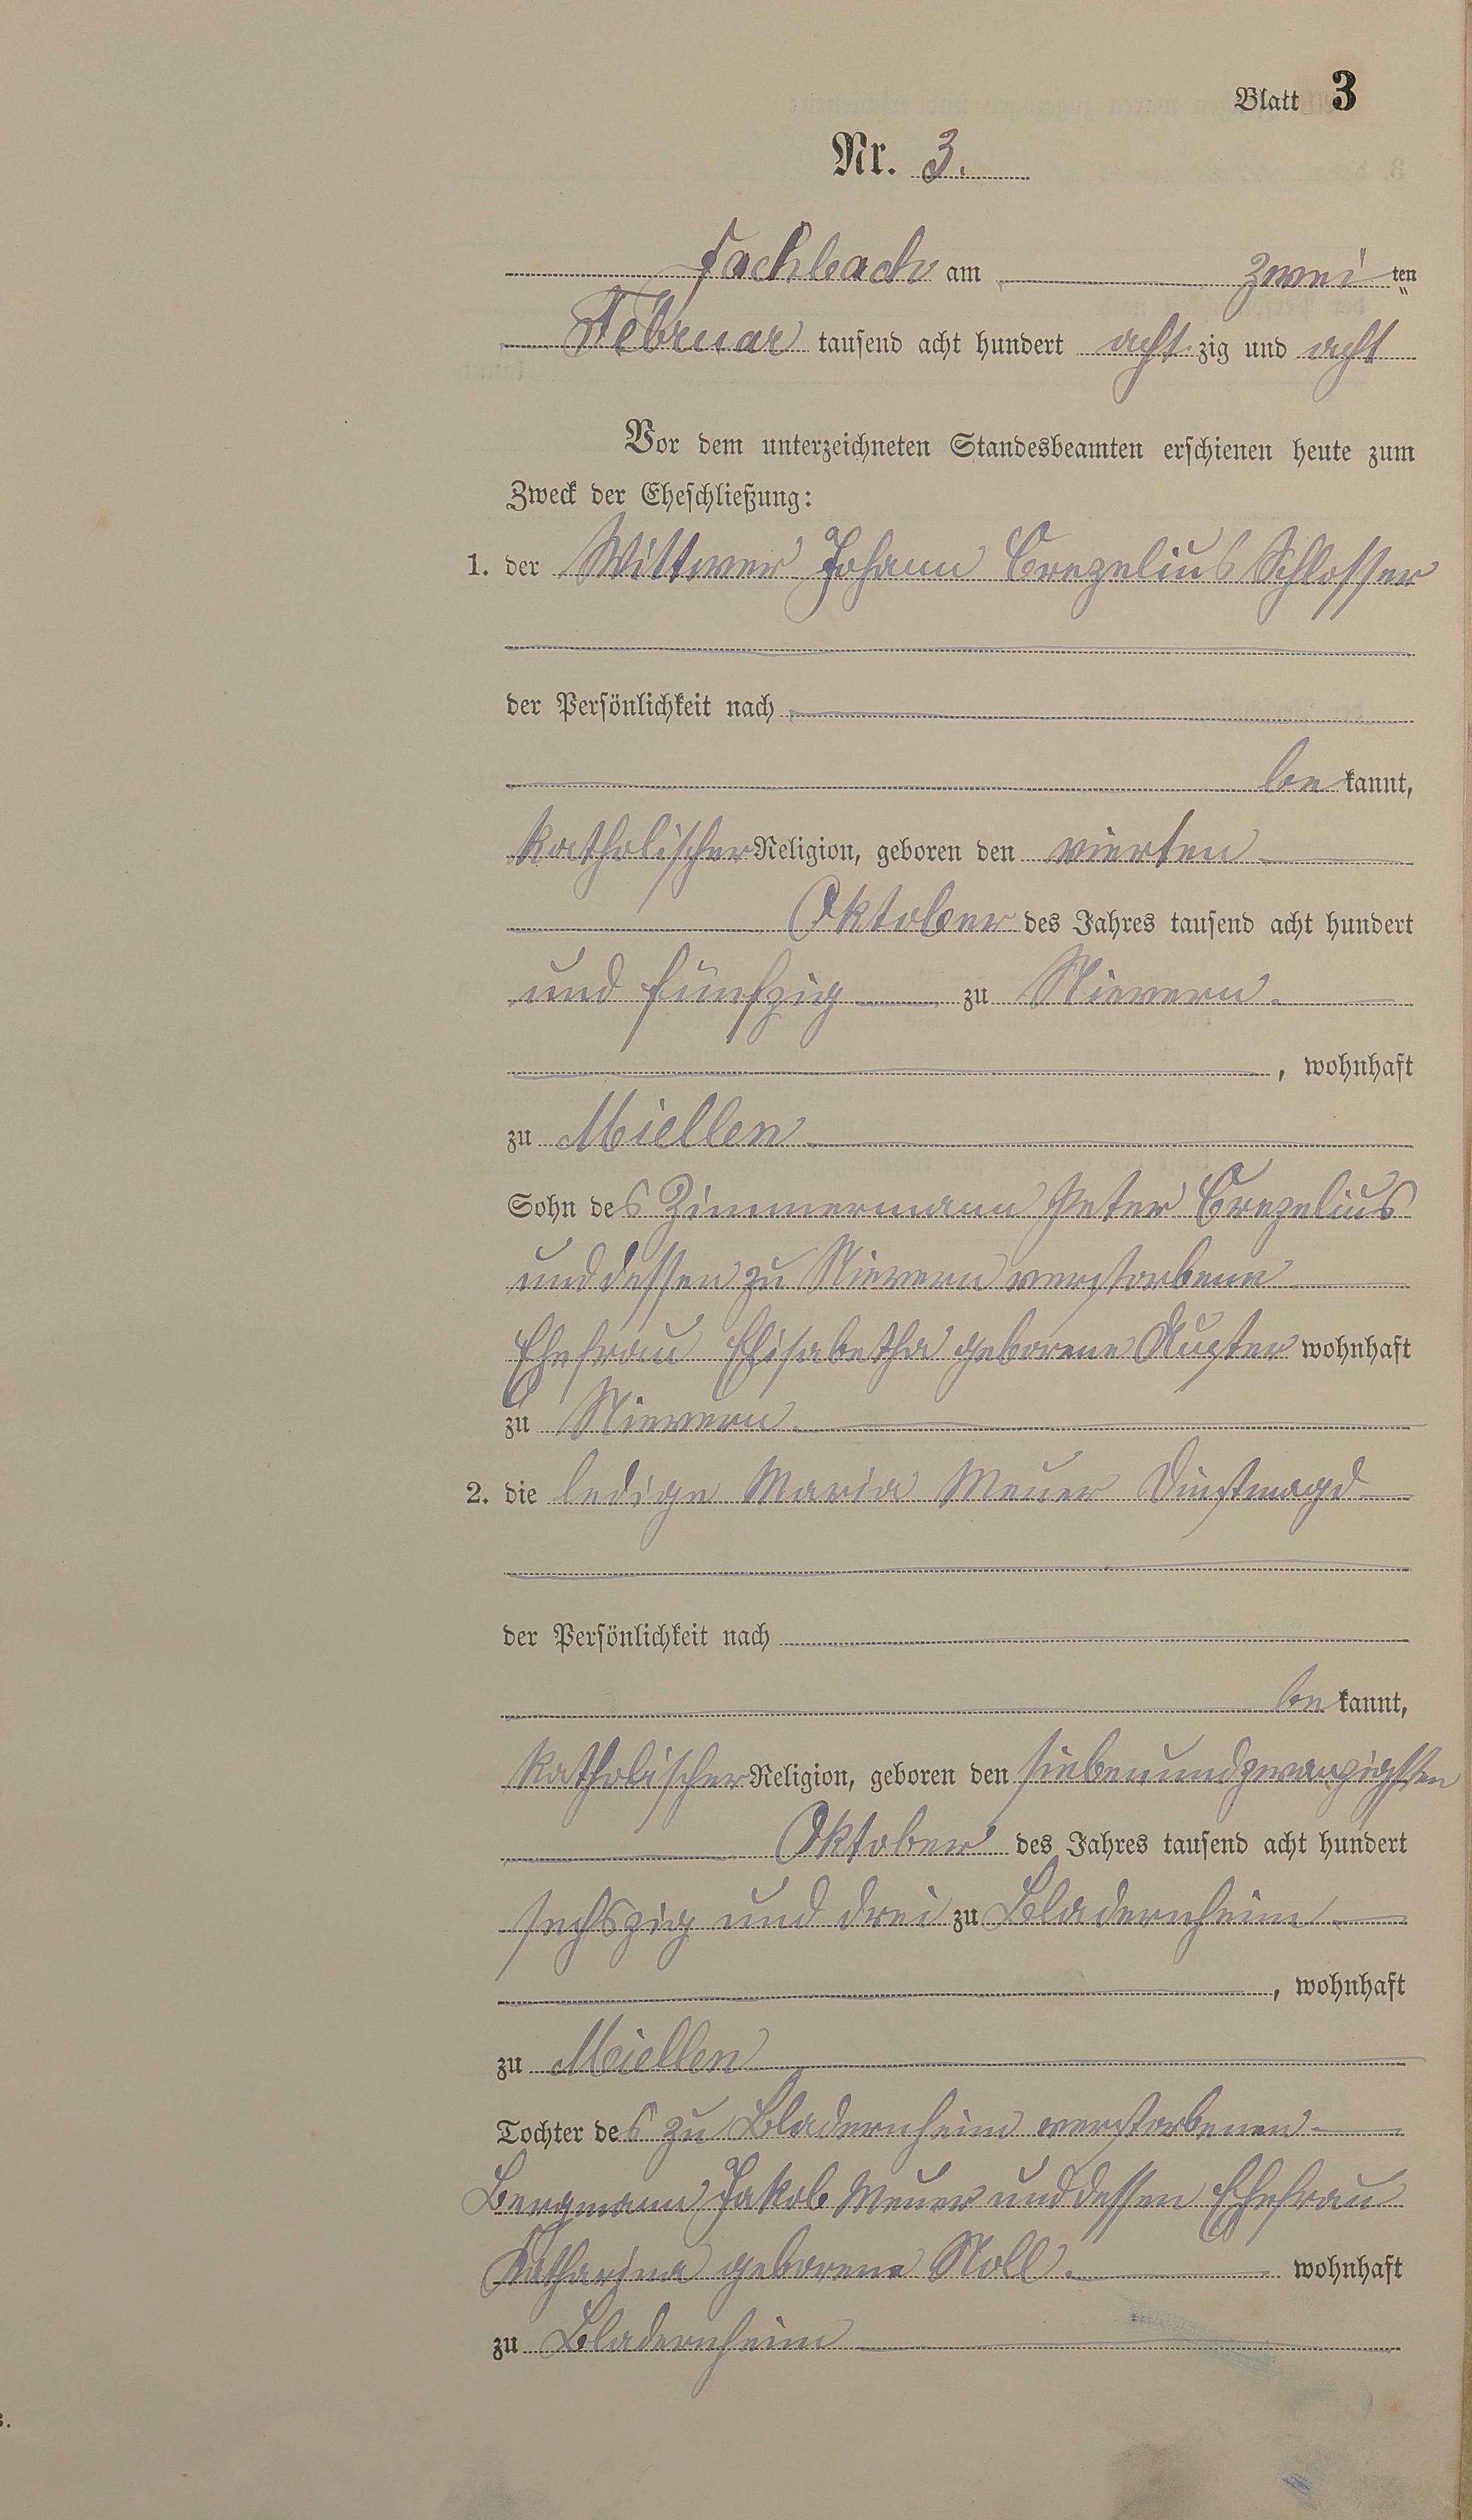 Blatt 3
Nr. 3.
Fachbach am zwei ten
Februar tausend acht hundert acht zig und acht
Vor dem unterzeichneten Standesbeamten erschienen heute zum
Zweck der Eheschließung:
1. der Wittwer Johann Crezelius Schlosser
der Persönlichkeit nach
be kannt,
katholischer Religion, geboren den vierten
Oktober des Jahres tausend acht hundert
und fünfzig zu Nievern.
, wohnhaft
zu Miellen
Sohn des Zimmermann Peter Crezelius
und dessen zu Nievern verstorbene
Ehefrau Elisabetha geborene Augster wohnhaft
zu Nievern.
2. die ledige Maria Meuer Dienstmagd
der Persönlichkeit nach
be kannt,
katholischer Religion, geboren den siebenundzwanzigsten
Oktober des Jahres tausend acht hundert
sechszig und drei zu Bladernheim
, wohnhaft
zu Miellen
Tochter des zu Bladernheim verstorbenen
Bergmann Jakob Meuer und dessen Ehefrau
Katharina geborene Noll. wohnhaft
zu Bladernheim